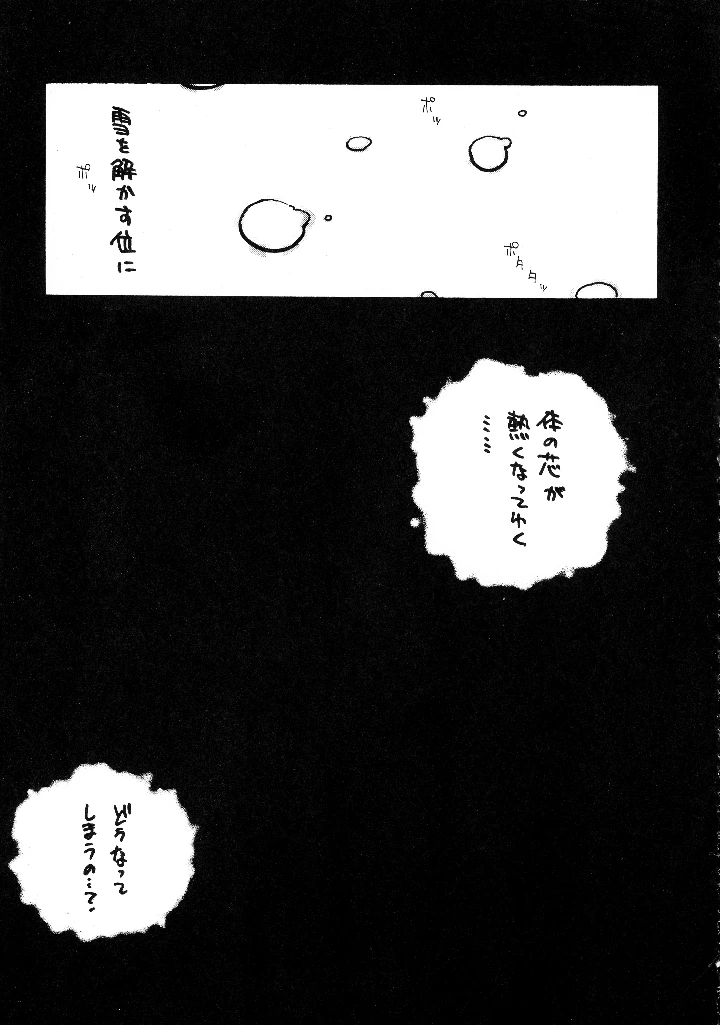 ポッ
ポタタッ
ポッ
雪を解かす位に
体の芯が
熱くなってゆく
……
どうなって
しまうの…?